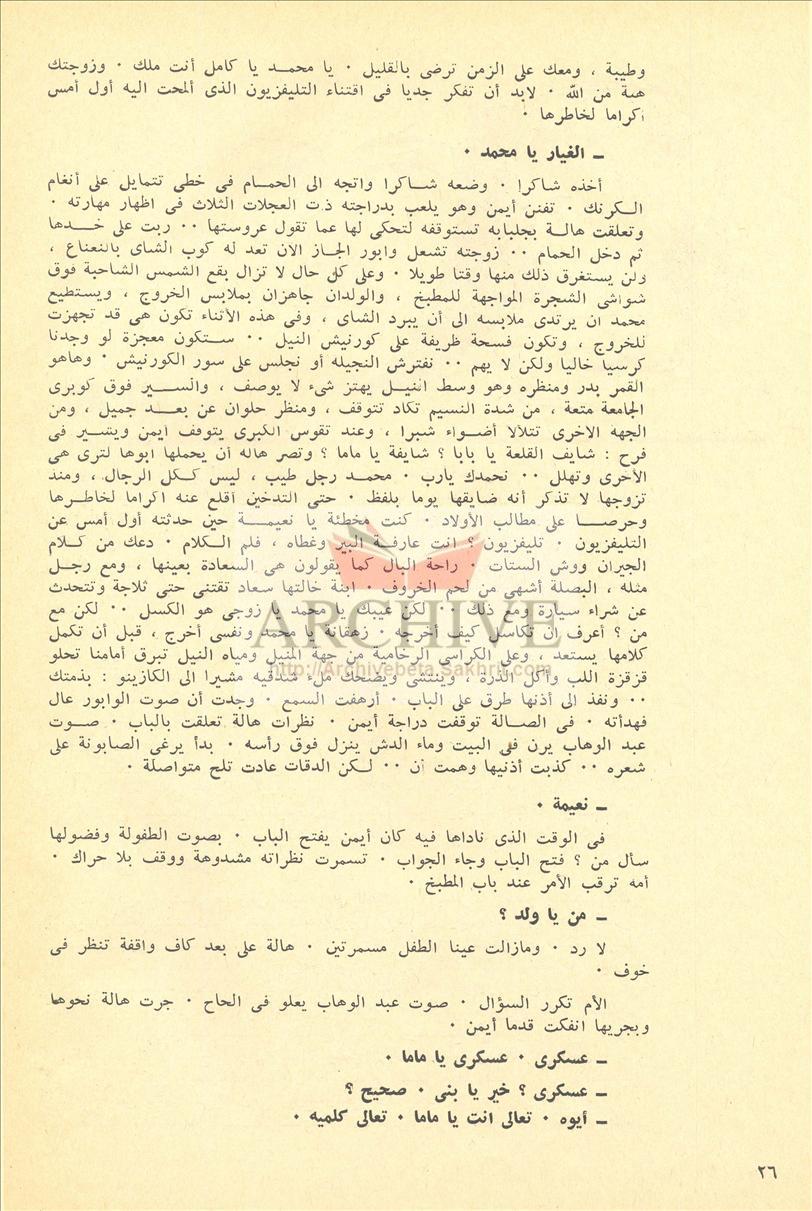 وطيبة ، ومعك على الزمن ترضى بالقليل ٠ يا محمـد يا كامل أنت ملك ٠ وزوجتك
هبة من الله ٠ لابد أن تفكر جديا فى اقتناء التليفزيون الذى ألمحت اليه أول أمس
اكراما لخاطرها ٠
ـ الغيار يا محمد ٠
أخذه شاكرا ٠ وضعه شـاكرا واتجه الى الحمـام فى خطى تتمايل على أنغام
الـكرنك ٠ تفنن أيمن وهو يلعب بدراجته ذات العجلات الثلاث فى اظهار مهارته ٠
وتعلقت هالـة بجلبابه تستوقفه لتحكى لها عما تقول عروستها ٠٠ ربت على خـدها
ثم دخل الحمام ٠٠ زوجته تشعل وابور الجـاز الان تعد له كوب الشاى بالنعناع ،
ولن يستغرق ذلك منها وقتا طويلا ٠ وعلى كل حال لا تزال بقع الشمس الشاحبة فوق
شواشى الشجرة المواجهة للمطبخ ، والولدان جاهزان بملابس الخروج ، ويستطيع
محمد ان يرتدى ملابسه الى أن يبرد الشاى ، وفى هذه الأثناء تكون هى قد تجهزت
للخروج ، وتكون فسحة ظريفة على كورنيش النيل ٠٠ ستـكون معجزة لو وجدنا
كرسيا خاليا ولكن لا يهم ٠٠ نفترش النجيله أو نجلس على سور الكورنيش ٠ وهاهو
القمر بدر ومنظره وهو وسط النيـل يهتز شىء لا يوصف ، والسـير فوق كوبرى
الجامعة متعة ، من شدة النسيم تكاد تتوقف ، ومنظر حلوان عن بعـد جميل ، ومن
الجهه الاخرى تتلألأ أضـواء شبرا ، وعند تقوس الكبرى يتوقف ايمن ويشـير فى
فرح : شايف القلعة يا بابا ؟ شايفة يا ماما ؟ وتصر هاله أن يحملها ابوها لترى هى
الأخرى وتهلل ٠٠ نحمدك يارب ٠ محمـد رجل طيب ، ليس كـكل الرجال ، ومنذ
تزوجها لا تذكر أنه ضايقها يوما بلفظ ٠ حتى التدخين أقلع عنه اكراما لخاطـرها
وحرصـا على مطالب الأولاد ٠ كنت مخطئة يا نعيمـة حين حدثته أول أمس عن
التليفزيون ٠ تليفزيون ؟ انت عارفـة البير وغطاه ، فلم الكـلام ٠ دعك من كـلام
الجيران ووش الستات ٠ راحة البال كما يقولون هى السعادة بعينها ، ومع رجـل
مثله ، البصلة أشهى من لحم الخروف ٠ ابنة خالتها سعاد تقتنى حتى ثلاجة وتتحدث
عن شراء سيارة ومع ذلك ٠٠ لكن عيبك يا محمد يا زوجى هو الكسل ٠٠ لكن مع
من ؟ أعرف ان تكاسل كيف أخرجه ٠ زهقانة يا محمد ونفسى أخرج ، قبل أن تكمل
كلامها يستعد ، وعلى الكراسى الرخامية من جهة المنيل ومياه النيل تبرق أمامنا تحلو
قزقزة اللب وأكل الذرة ، وينتشى ويضحك ملء شدقيه مشيرا الى الكازينو : بذمتك
٠٠ ونفذ الى أذنها طرق على الباب ٠ أرهفت السمع ٠ وجدت أن صوت الوابور عال
فهدأته ٠ فى الصـالة توقفت دراجة أيمن ٠ نظرات هالة تعلقت بالباب ٠ صـوت
عبد الوهاب يرن فى البيت وماء الدش ينزل فوق رأسه ٠ بدأ يرغى الصابونة على
شعره ٠٠ كذبت أذنيها وهمت أن ٠٠ لـكن الدقات عادت تلح متواصلة ٠
ـ نعيمة ٠
فى الوقت الذى ناداها فيه كان أيمن يفتح الباب ٠ بصوت الطفولة وفضولها
سأل من ؟ فتح الباب وجاء الجواب ٠ تسمرت نظراته مشدوهة ووقف بلا حراك ٠
أمه ترقب الأمر عند باب المطبخ ٠
ـ من يا ولد ؟
لا رد ٠ ومازالت عينا الطفل مسمرتين ٠ هالة على بعد كاف واقفة تنظر فى
خوف ٠
الأم تكرر السؤال ٠ صوت عبد الوهاب يعلو فى الحاح ٠ جرت هالة نحوها
وبجريها انفكت قدما أيمن ٠
ـ عسكرى ٠ عسكرى يا ماما ٠
ـ عسكرى ؟ خير يا بنى ٠ صحيح ؟
ـ أيوه ٠ تعالى انت يا ماما ٠ تعالى كلميه ٠
ARCHIVE
http://Archivebeta.Sakhrit.com
٢٦